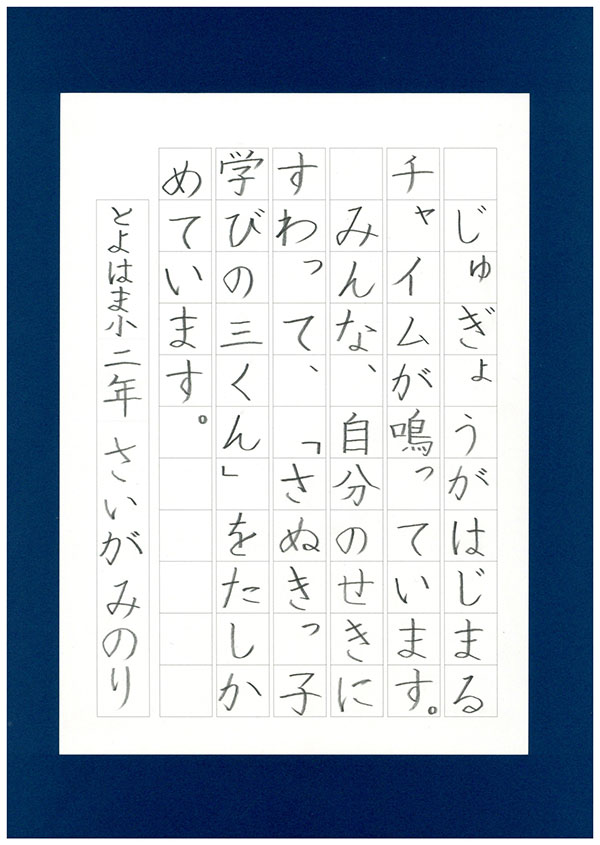 じゅぎょうがはじまる
チャイムが鳴っています。
みんな、自分のせきに
すわって、「さぬきっ子
学びの三くん」をたしか
めています。
とよはま小二年さいがみのり